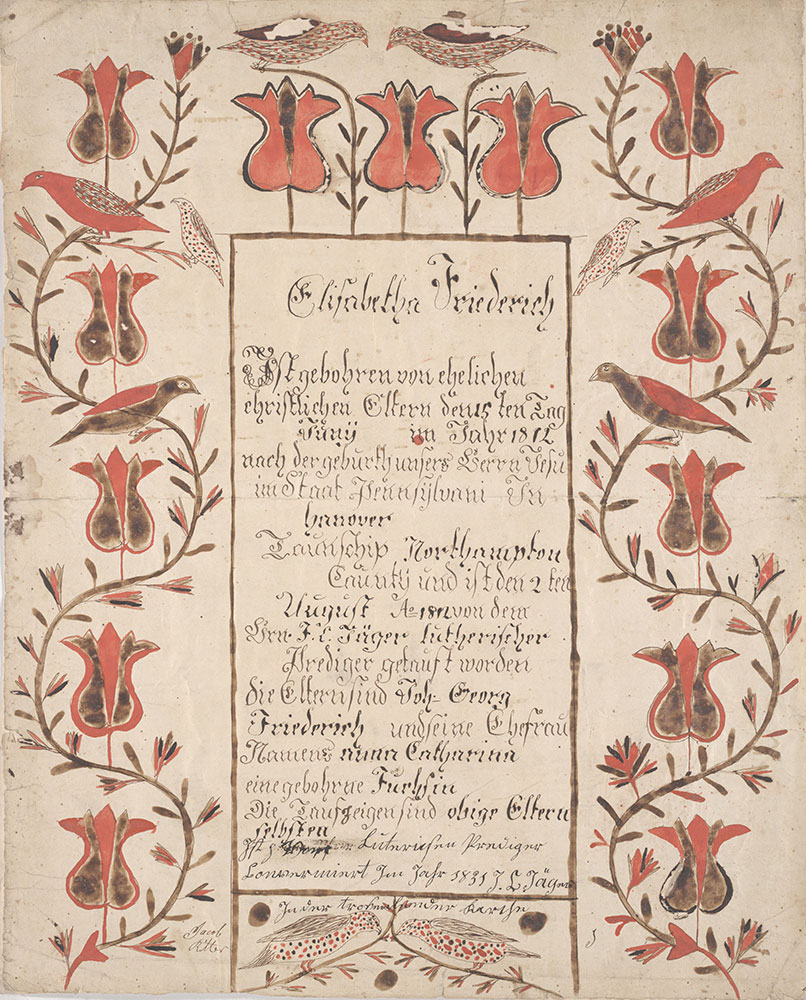 Elisabetha Friederich
Ist gebohren von ehelichen
christlichen Eltern den 15 ten Tag
Junÿ im Jahr 1812
nach der geburth unsers Herrn Jesu
im Staat Pennsylvani In
hanover
Taunschip Northampton
Caunty und ist den 2 ten
August Ao 1812 von dem
Hrn. F. C. Jäger lutherischer
Prediger getauft worden
die Eltern sind Joh. Georg
Friederich und seine Ehefrau
Namens anna Catharina
eine gebohrne Fuchsin
Die Taufzeigen sind obige Eltern
selbsten
Ist Luterisen Prediger
Convermiert Im Jahr 1831 J. C. Jäger
In der Kerche
Jacob
Ritter